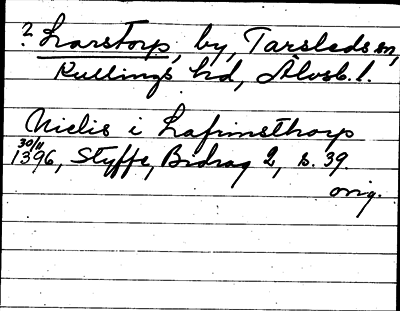 ? Larstorp, by, Tarsleds sn,
Kullings hd, Älvsb. l.
Niclis i Lafrinsthorp
30/11
1396, Styffe, Bidrag 2, s. 39.
orig.